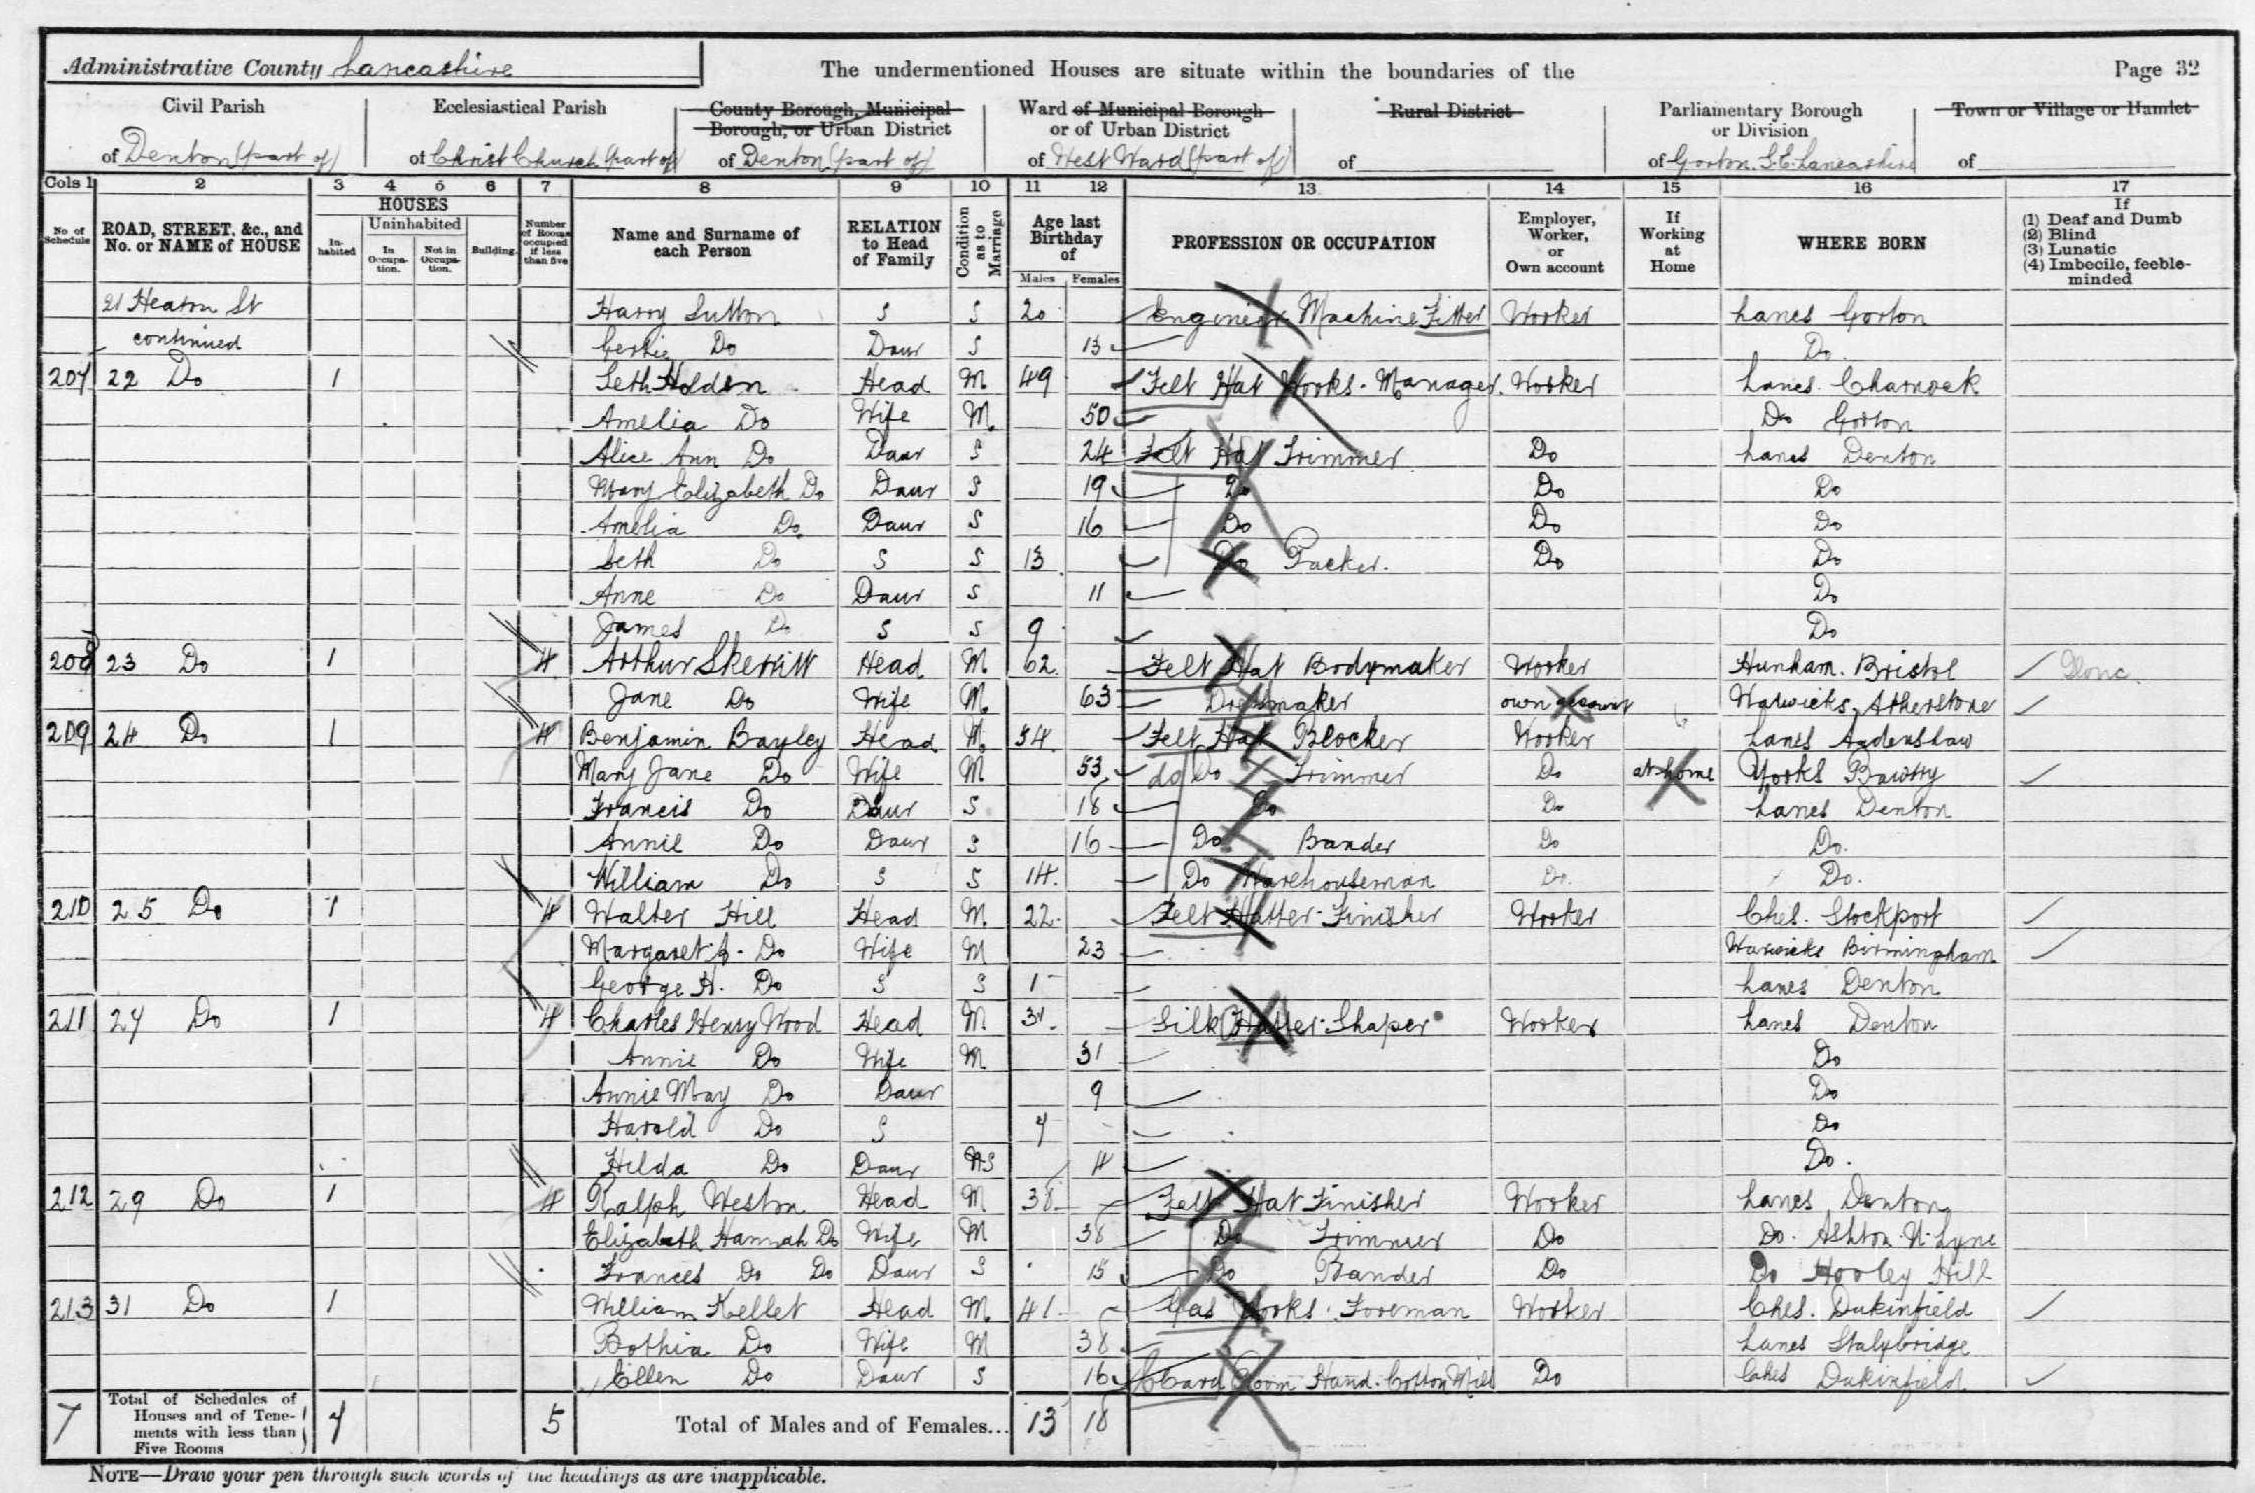 Administrative County Lancashire
The undermentioned Houses are situate within the boundaries of the
Page 32
Civil Parish
of Denton (part of)
Ecclesiastical Parish
of Christ Church (part of)
County Borough, Municipal
Borough, or Urban District
of Denton (part of)
Ward of Municipal Borough
or of Urban District
of West Ward (part of)
Rural District
of
Parliamentary Borough
or Division
of Gorton. S.E. Lancashire
Town or Village or Hamlet
of
Cols 1 2 3 4 5 6 7 8 9 10 11 12 13 14 15 16 17
No of Schedule
ROAD, STREET, &c., and No. or NAME of HOUSE
HOUSES
In-habited
Uninhabited
In Occupa-tion.
Not in Occupa-tion.
Building.
Number of Rooms occupied if less than five
Name and Surname of each Person
RELATION to Head of Family
Condition as to Marriage
Age last Birthday of
Males Females
PROFESSION OR OCCUPATION
Employer, Worker, or Own account
If Working at Home
WHERE BORN
If
(1) Deaf and Dumb
(2) Blind
(3) Lunatic
(4) Imbecile, feeble-minded
21 Heaton St Harry Sutton S S 20 Engineer Machine Fitter Worker Lancs Gorton
continued Gertie Do Daur S 13 Do
207 22 Do 1 Seth Holden Head M 49 Felt Hat Works. Manager. Worker Lancs. Charnock
Amelia Do Wife M. 50 Do Gorton
Alice Ann Do Daur S 24 Felt Hat Trimmer Do Lancs Denton
Mary Elizabeth Do Daur S 19 Do Do Do
Amelia Do Daur S 16 Do Do Do
Seth Do S S 13 Do Packer. Do Do
Anne Do Daur S 11 Do
James Do S S 9 Do
208 23 Do 1 4 Arthur Skerritt Head M. 62 Felt Hat Bodymaker Worker Hunham. Bristol Glouc.
Jane Do Wife M. 63 Dressmaker own account Warwicks, Atherstone
209 24 Do 1 4 Benjamin Bayley Head M. 54. Felt Hat Blocker Worker Lancs Audenshaw
Mary Jane Do Wife M 53 do Do Trimmer Do at home Yorks Bawtry
Francis Do Daur S 18 Do Do Lancs Denton
Annie Do Daur S 16 Do Bander Do Do.
William Do S S 14. Do Warehouseman Do. Do.
210 25 Do 1 4 Walter Hill Head M. 22. Felt Hatter-Finisher Worker Ches. Stockport
Margaret Do Wife M 23 Warwicks Birmingham
George H. Do S S 1 Lancs Denton
211 27 Do 1 4 Charles Henry Wood Head M. 31. Silk Hatter. Shaper Worker Lancs Denton
Annie Do Wife M 31 Do
Annie May Do Daur 9 Do
Harold Do S 7 Do
Hilda Do Daur S 4 Do.
212 29 Do 1 4 Ralph Weston Head M 38 Felt Hat Finisher Worker Lancs Denton
Elizabeth Hannah Do Wife M 38 Do Trimmer Do Do. Ashton-U-Lyne
Frances Do Do Daur S 15 Do Bander Do Do Hooley Hill
213 31 Do 1 William Kellet Head M. 41. Gas Works. Foreman Worker Ches. Dukinfield
Bothia Do Wife M 38 Lancs Stalybridge
Ellen Do Daur S 16 Card Room Hand. Cotton Mill Do Ches Dukinfield
7 Total of Schedules of
Houses and of Tene-
ments with less than
Five Rooms
7 5 Total of Males and of Females... 13 18
NOTE—Draw your pen through such words of the headings as are inapplicable.